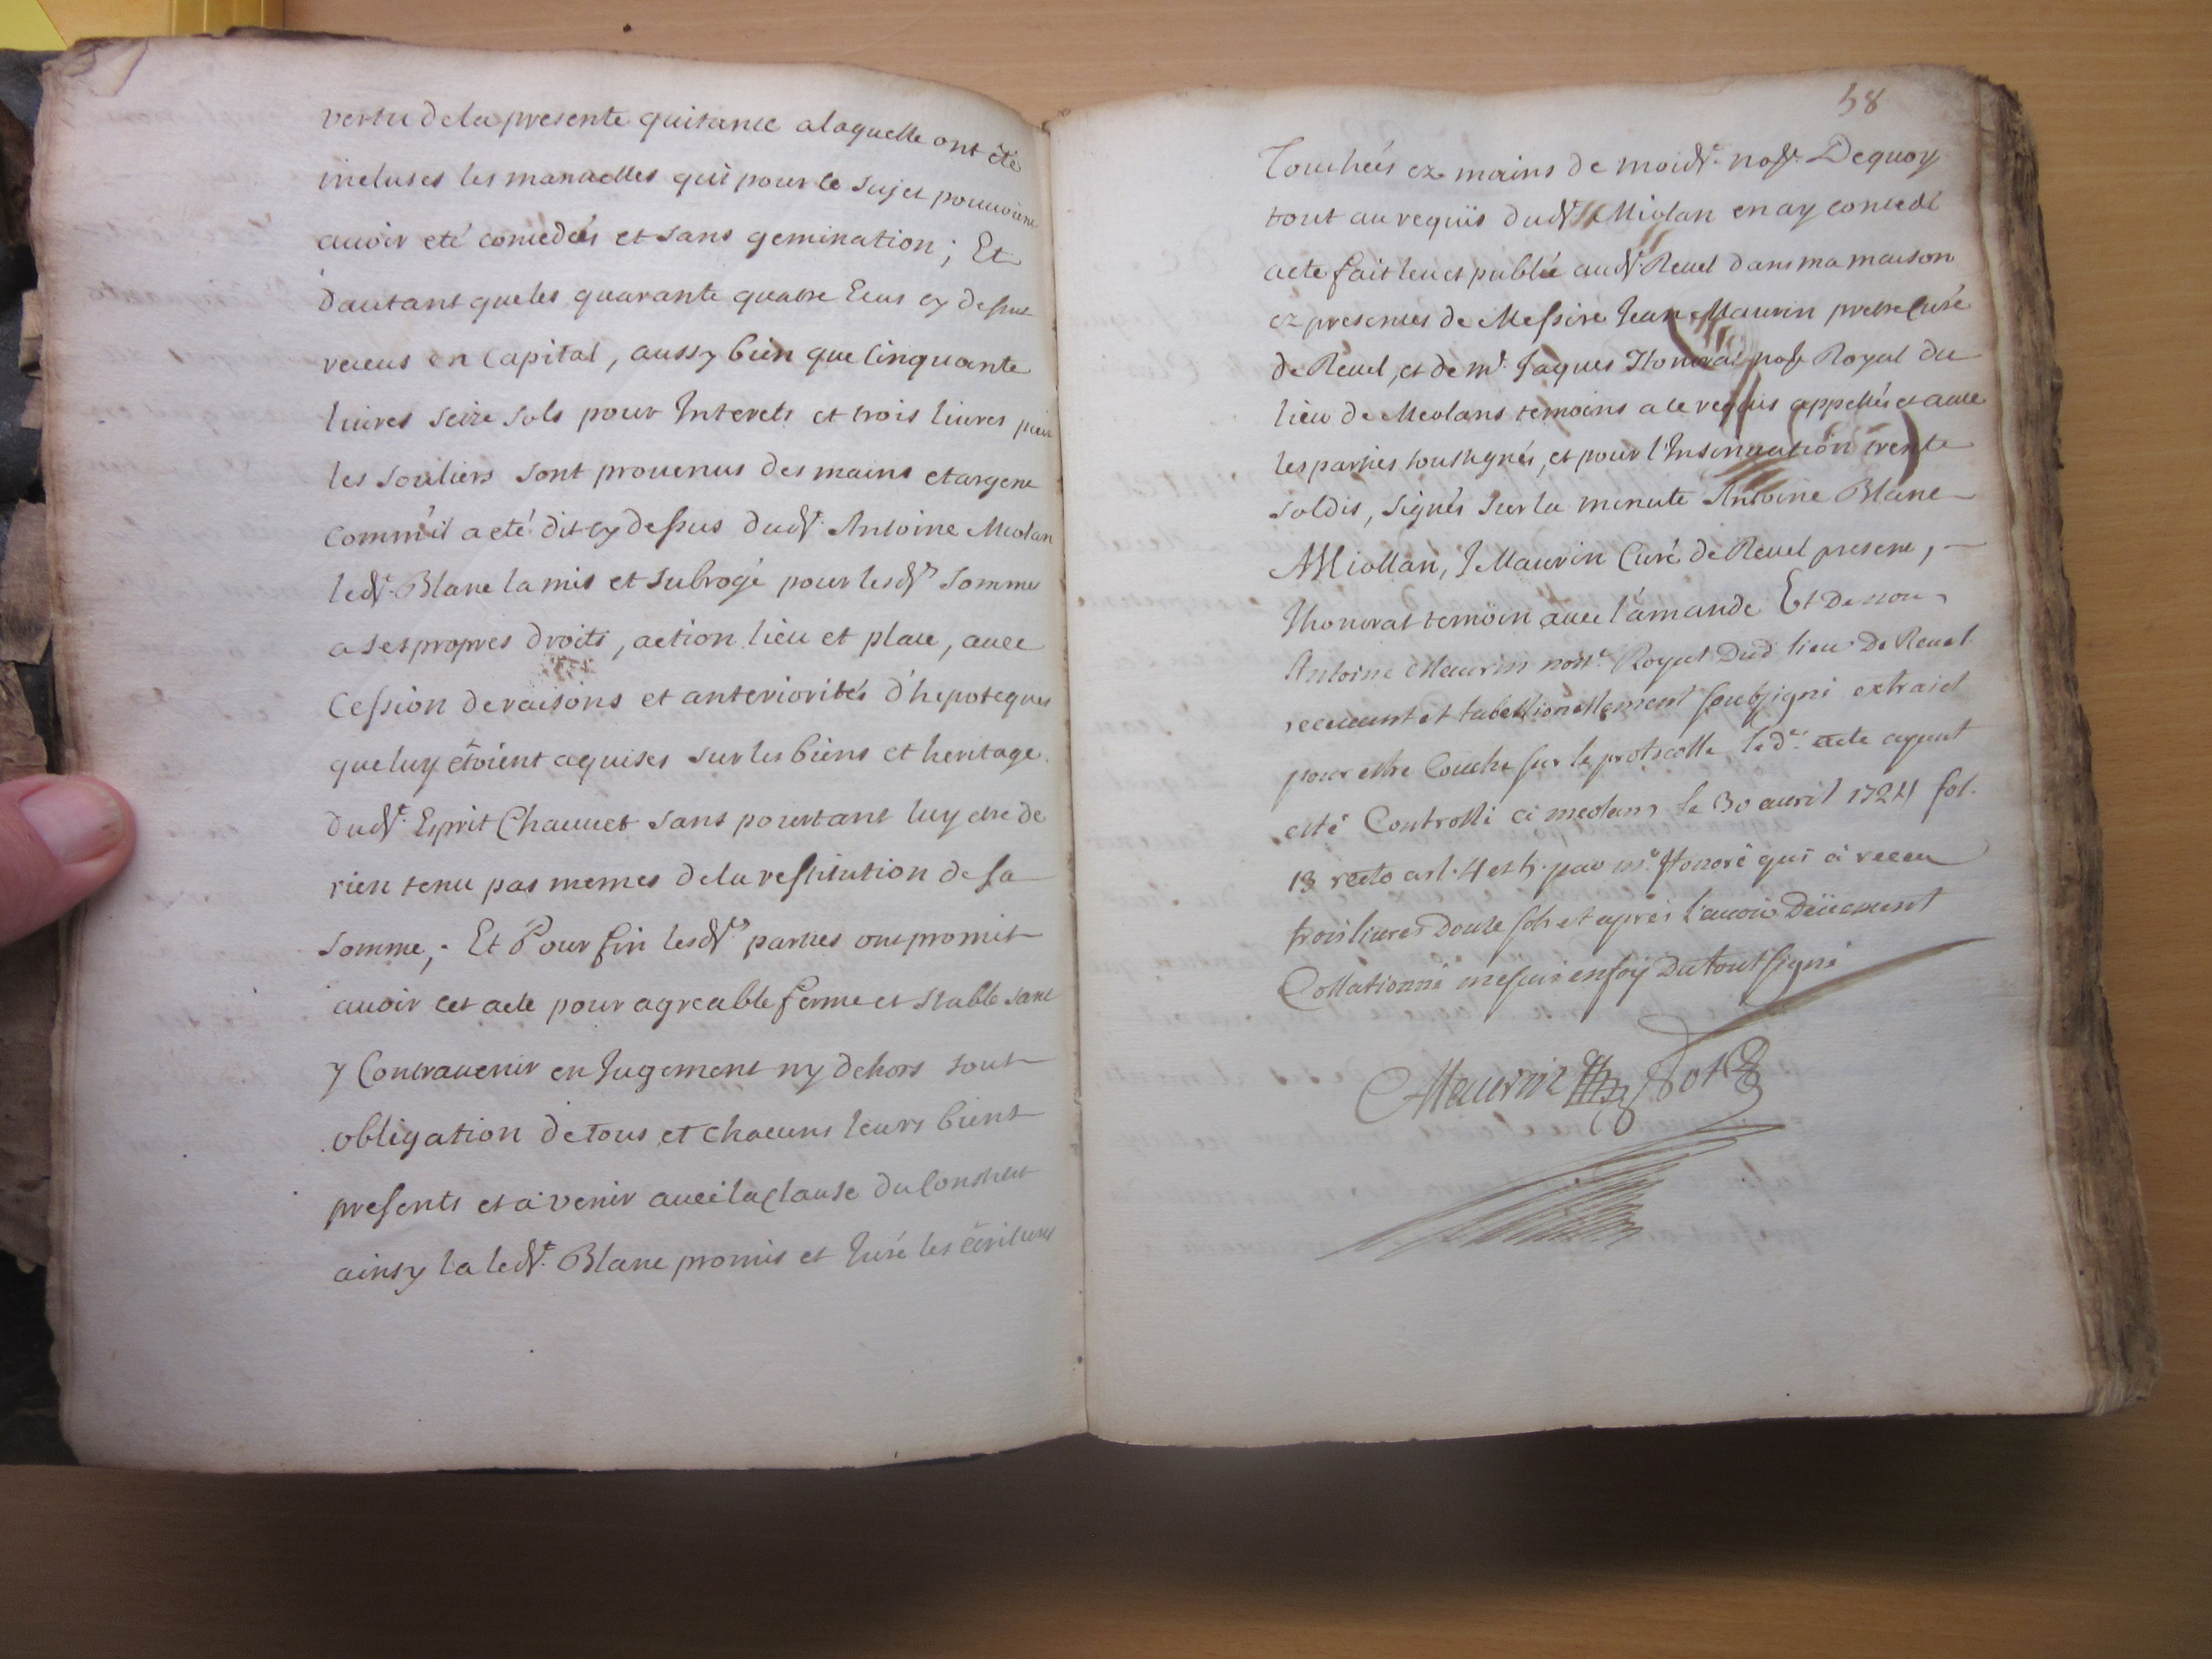 vertu dela presente quitance alaquelle ont été
incluses les manuelles qui pour le sujet pouuoient
auoir eté concedées et sans gemination ; Et
Dautant queles quarante quatre Ecus cy dessus
receus en Capital, aussy bien que Cinquante
liures seize sols pour Interets et trois liures pour
les souliers sont prouenus des mains et argent
comm'il a eté dit cy dessus dudt. Antoine Miolan
ledt. Blanc la mis et subrogé pour lesdts sommes
a ses propres droits, action lieu et place, auec
Cession de raisons et anteriorités d'hepoteques
que luy étoient aquises sur les biens et heritage
dudt. Esprit Chauuet sans pourtant luy etre de
rien tenu pas memes dela restitution de sa
somme, . Et Pour fin lesdts parties ont promit
auoir cet acte pour agreable ferme et stable sans
y Contrauenir en Jugement ny dehors sout
obligation de tous et chacuns leurs biens
presents et a venir auec la clause du Constitut
ainsy la ledt. Blanc promis et Juré les écritures
58
Touchées ez mains de moidt. nore. Dequoy
tout au requis dudt Miolan en ay concedé
acte fait leu et publié audt. Reuel dans ma maison
ez presences de Messire Jean Maurin pretre Curé
de Reuel, et de me. Jaques Honorat nore Royal du
lieu de Meolans temoins a ce requis appellés et auec
les parties soussignés, et pour l'Insinuation trente
soldis, signés sur la minute Antoine Blanc
AMiollan, J Maurin Curé de Reuel present,
Jhonorat temoin auec l'amande Et de nous
Antoine Maurin nore. Royal Dud lieu De Reuel
receuant et tabellionellement soubsigné extraict
pour estre Couché sur le protocolle, led. acte ayant
esté Controllé a meolans le 30 auril 1724 fol.
13 recto art. 4 et 5. par me. Honoré qui a receu
trois liures Douze sols et apres l'auoir Deuement
Collationné me suis en foy Du tout signé
Maurin Not